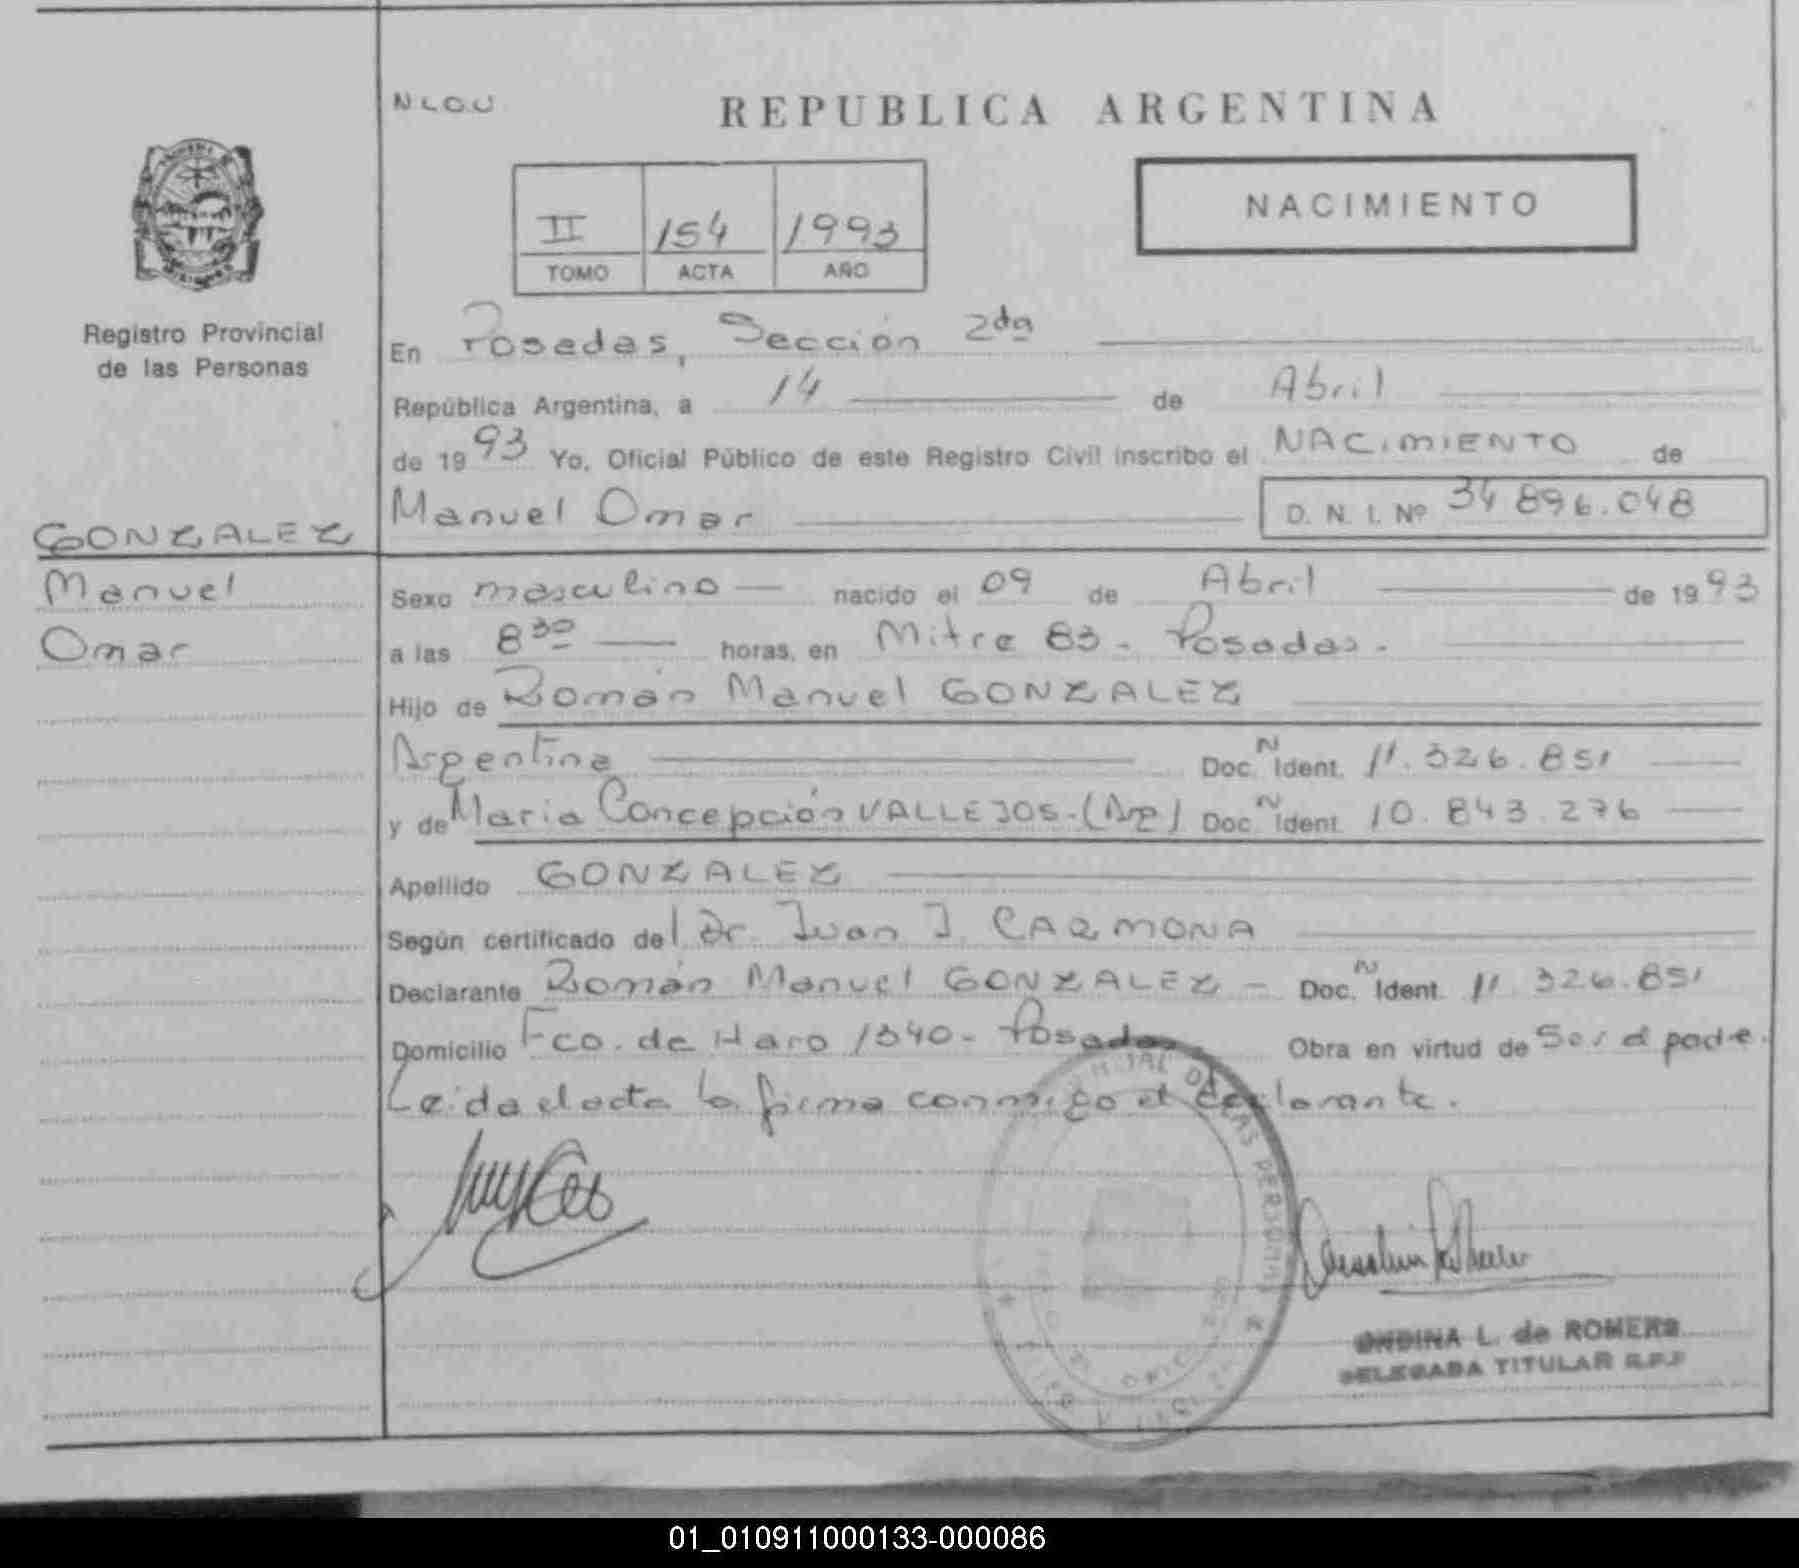 NLOU
REPUBLICA ARGENTINA
NACIMIENTO
II 154 1993
TOMO ACTA AÑO
Registro Provincial
de las Personas
En Posadas, Sección 2da
República Argentina, a 14 de Abril
de 1993 Yo, Oficial Público de este Registro Civil inscribo el NACIMIENTO de
GONZALEZ
Manuel
Omar
Manuel Omar D. N. I. Nº 34 896.048
Sexo masculino nacido el 09 de Abril de 1993
a las 8 30 horas, en Mitre 83 - Posadas.
Hijo de Román Manuel GONZALEZ
Argentina Doc. N Ident. 11.326.851
y de Maria Concepción VALLEJOS - (Arg) Doc. N Ident. 10.843.276
Apellido GONZALEZ
Según certificado del Dr. Juan J. CARMONA
Declarante Román Manuel GONZALEZ - Doc. N Ident. 11.326.851
Domicilio Fco. de Haro 1340 - Posadas Obra en virtud de ser el padre.
Leida el acta la firma conmigo el declarante.
ONDINA L. de ROMERO
DELEGADA TITULAR R.P.P
01_010911000133-000086